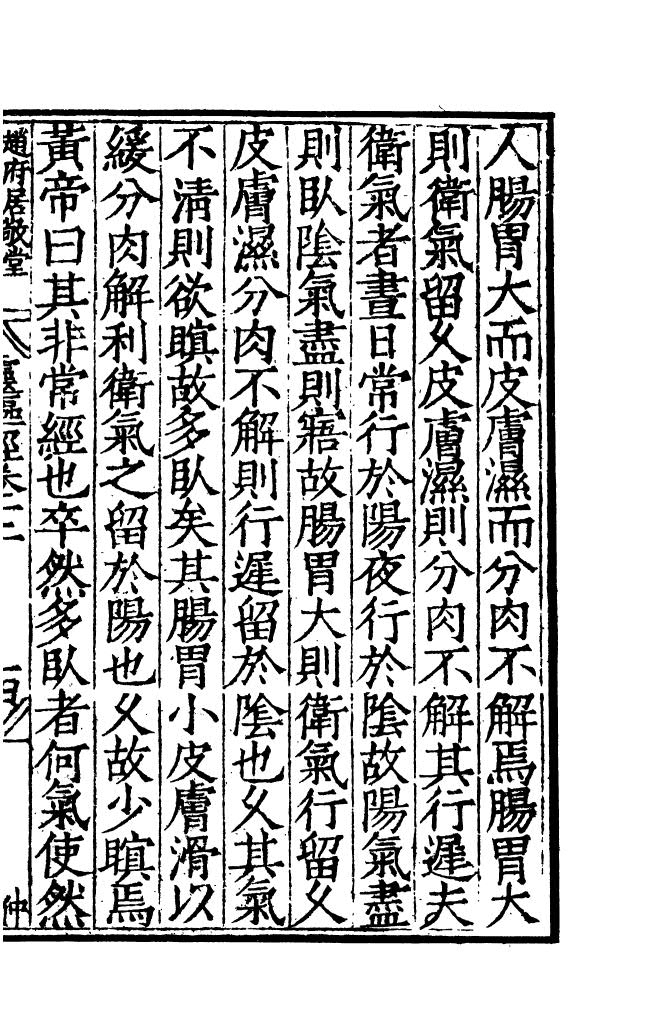 人腸胃大而皮膚濕而分肉不解焉腸胃大
則衛氣留乆皮膚濕則分肉不解其行遲夫
衛氣者晝日常行於陽夜行於隂故陽氣盡
則臥隂氣盡則寤故腸胃大則衛氣行留乆
皮膚濕分肉不解則行遲留於隂也乆其氣
不淸則欲瞑故多臥矣其腸胃小皮膚滑以
緩分肉解利衛氣之留於陽也乆故少瞑焉
黃帝曰其非常經也卒然多臥者何氣使然
趙府居敬堂